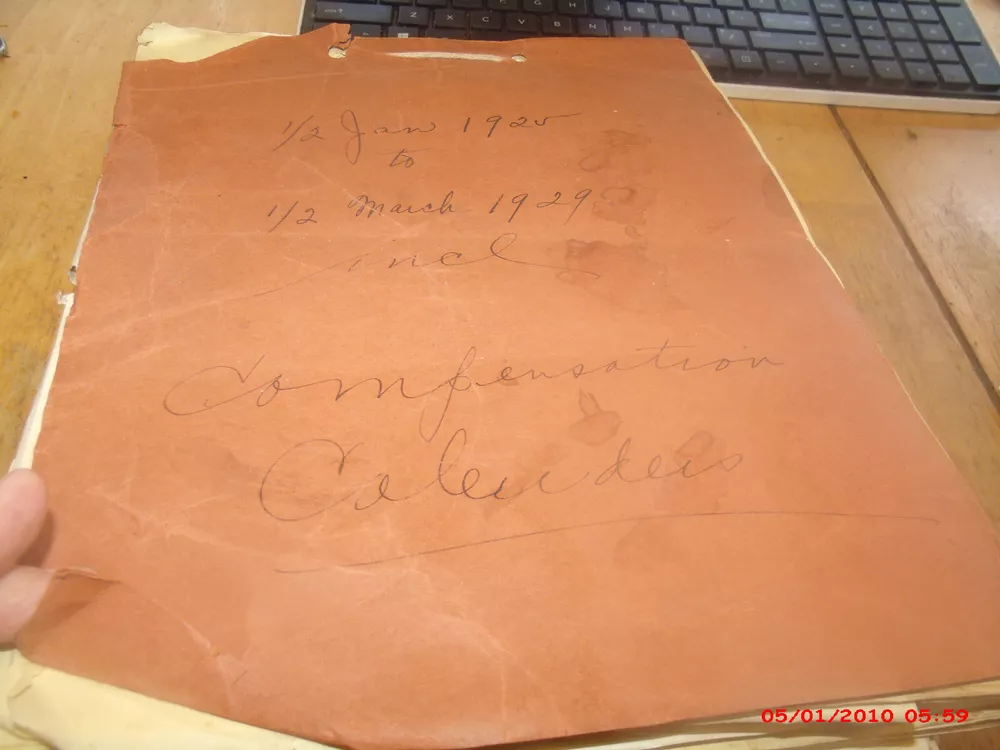 1/2 Jan 1925
to
1/2 March 1929
incl
Compensation
Calendars
05/01/2010 05:59